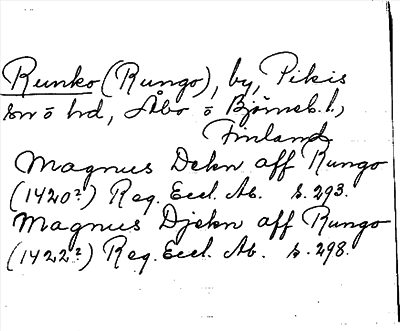 Runko (Rungo), by, Pikis
sn o hd, Åbo o Björneb. l.,
Finland
Magnus Dekn aff Rungo
(1420?) Reg. Eccl. Ab. s. 293.
Magnus Djekn aff Rungo
(1422?) Reg. Eccl. Ab. s. 298.